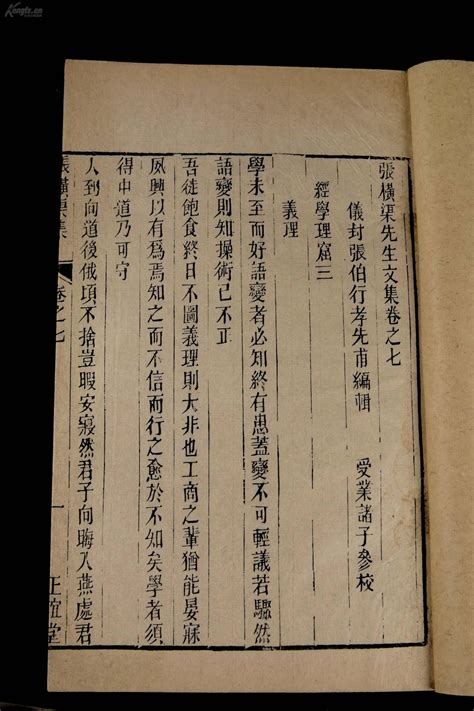 張橫渠先生文集卷之七
儀封張伯行孝先甫編輯 受業諸子參校
經學理窟三
義理
學未至而好語變者必知終有患蓋變不可輕議若驟然
語變則知操術已不正
吾徒飽食終日不圖義理則大非也工商之輩猶能晏寐
夙興以有為焉知之而不信而行之愈於不知矣學者須
得中道乃可守
人到向道後俄頃不捨豈暇安寢然君子向晦入燕處君
張橫渠集 卷之七 一 正誼堂
Kongfz.cn